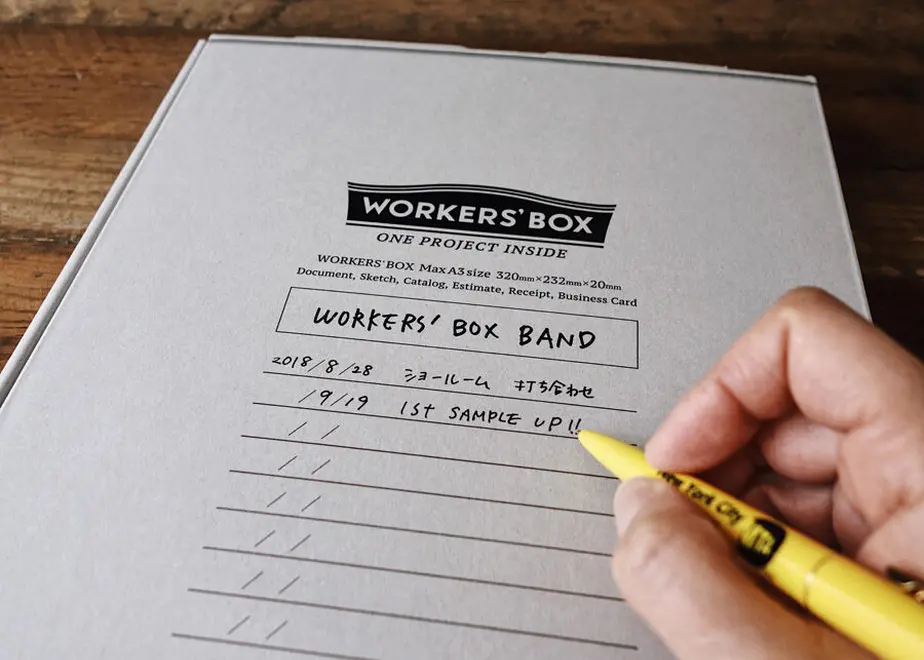 WORKERS' BOX
ONE PROJECT INSIDE
WORKERS' BOX Max A3 size 320mm×232mm×20mm
Document, Sketch, Catalog, Estimate, Receipt, Business Card
WORKERS' BOX BAND
2018/8/28 ショールーム 打ち合わせ
/9/19 1St SAMPLE UP!!
/ /
/ /
/ /
/ /
/ /
/ /
New York City